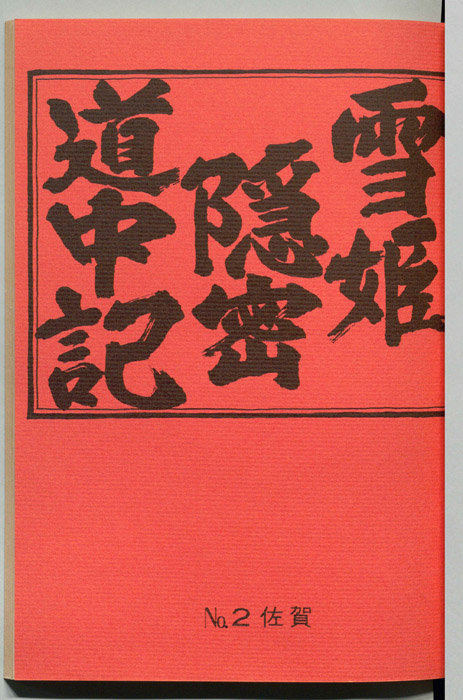 雪姫
隠密
道中記
No.2 佐賀